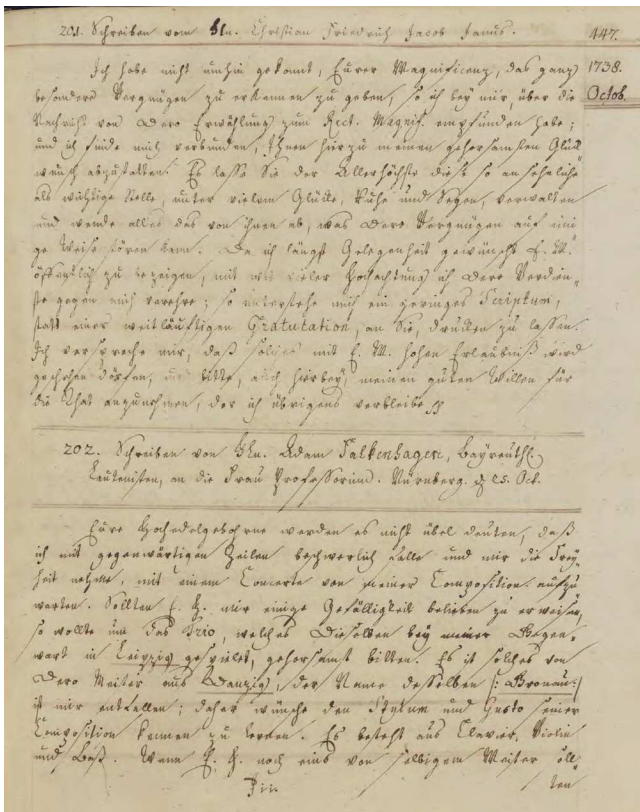 201. Schreiben vom Hln. Christian Friedrich Jacob Janus. 447.
Ich habe nicht umhin gekonnt, Eurer Magnificenz, das ganz 1738.
besondere Vergnügen zu erkennen zu geben, so ich bey mir, über die Octob.
Nachricht von Dero Erwählung zum Rect. Magnif. empfunden habe;
und ich finde mich verbunden, Ihnen hierzu meinen gehorsamsten Glück
wunsch abzustatten. Es lasse Sie der Allerhöchste diese so ansehnliche
als wichtige Stelle, unter vielem Glücke, Ruhe und Segen, verwalten
und wende alles das von ihnen ab, was Dero Vergnügen auf eini
ge Weise stören kann. Da ich längst Gelegenheit gewünscht E. M.
öffentlich zu bezeigen, mit was vieler Hochachtung ich Dero Verdien„
ste gegen mich verehre; so unterstehe mich ein geringes Scriptum,
statt einer weitläuftigen Gratulation, an Sie, drucken zu lassen.
Ich verspreche mir, daß solches mit E. M. hohen Erlaubniß wird
geschehen dörfen, und bitte, auch hierbey, meinen guten Willen für
die That anzunehmen, der ich übrigens verbleibe
202. Schreiben von Hln. Adam Falkenhagen, Bayreuthl.
Lautenisten, an die Frau Professorinn. Nürnberg. d 25. Oct.
Eure Hochedelgebohrne werden es nicht übel deuten, daß
ich mit gegenwärtigen Zeilen beschwerlich falle und mir die Frey„
heit nehme, mit einem Concerte von meiner Composition aufzu
warten. Sollten E. H. mir einige Gefälligkeit belieben zu erweisen,
so wollte um das Trio, welches Dieselben bey meiner Gegen„
wart in Leipzig gespielet, gehorsamst bitten. Es ist solches von
Dero Meister aus Danzig, der Name desselben /: Gronau:/
ist mir entfallen; daher wünsche den Stylum und Gusto seiner
Composition kennen zu lernen. Es besteht aus Clavier, Violin
und Baß. Wenn E. H. noch eins von selbigem Meister soll„
ten